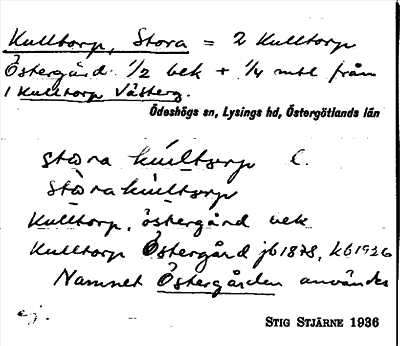 Kulltorp, Stora = 2 Kulltorp
Östergård 1/2 bek + 1/4 mtl från
1 Kulltorp Västerg.
Ödeshögs sn, Lysings hd, Östergötlands län
stora kulltorp l.
stora kulltorp
Kulltorp, östergård uek
Kulltorp Östergård jb 1878, kb 1926
Namnet Östergården användes
ej.
STIG STJÄRNE 1936